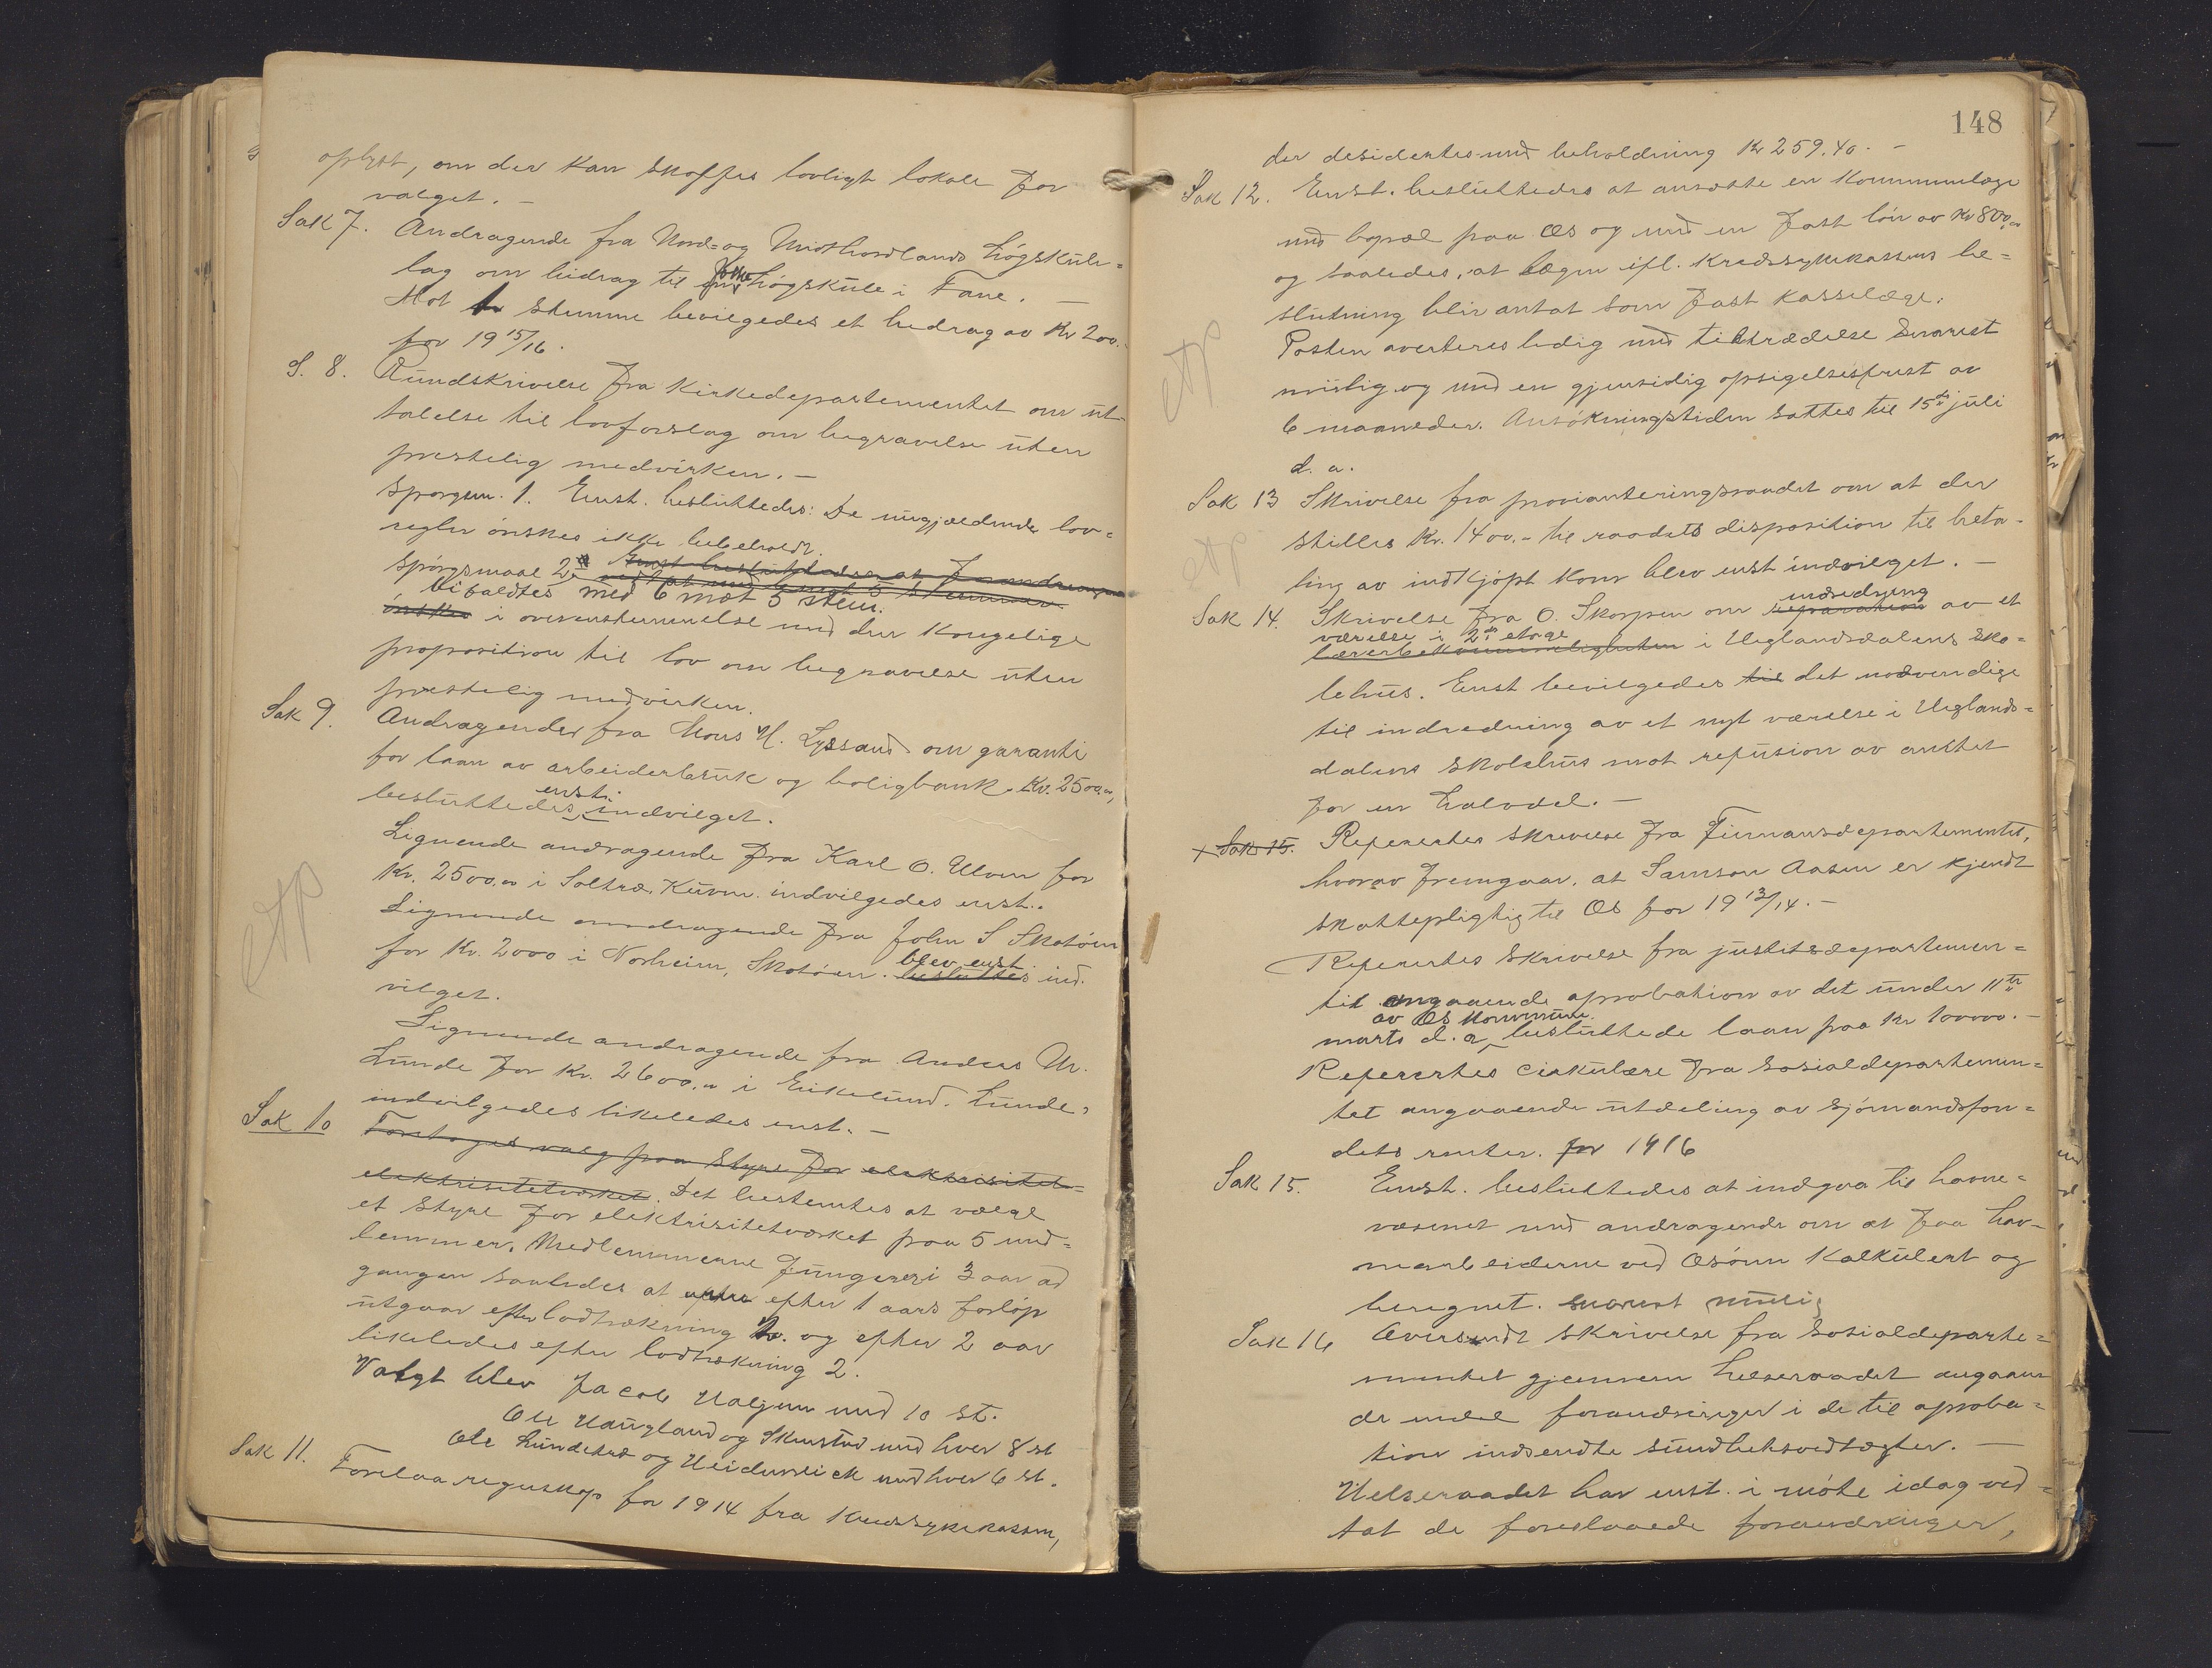 oplyst, om der kan skaffes lovligt lokale for
valget. –
Sak 7. Andragende fra Nord= og Midthordlands høgskule=
lag om bidrag til folkehøgskule i Fane. –
Mot 1 stemme bevilgedes et bidrag av Kr 200.-
for 19 15/16.
S. 8. Rundskrivelse fra Kirkedepartementet om ut-
talelse til lovforslag om begravelse uten
prestelig medvirken. –
Spørgsm. 1. Enst. besluttedes: De nugjældende lov=
regler ønskes ikke bibeholdt.
Spørgsmaal 2. Enst besluttedes at forandringer
bifaldtes med 6 mot 5 stem.
ønskes i overensstemmelse med den kongelige
proposition til lov om begravelse uten
prestelig medvirken.
Sak 9. Andragender fra Mons H. Lyssand om garanti
for laan av arbeiderbruk og boligbank. Kr. 2500.00,
enst.
besluttedes indvilget.
Lignende andragende fra Karl O. Ulven for
Kr. 2500.00 i Soltræ. Kuven. indvilgedes enst..
Lignende andragende fra John S Skotøen
for Kr. 2000 i Norheim, Skotøen. blev enst. besluttes ind-
vilget.
Lignende andragende fra Anders N.
Lunde for Kr. 2600.00 i Eikelund. Lunde,
indvilgedes likeledes enst. –
Sak 10 Foretoges valg paa styre for elektrisitets=
elektrisitetsverket. Det bestemtes at vælge
et styre for elektrisitetsverket paa 5 med=
lemmer. Medlemmerne fungerer i 3 aar ad
gangen saaledes at efter 1 aars forløp
utgaar efter lodtrækning 2. og efter 2 aar
likeledes efter lodtrækning 2.
Valgt blev Jacob Haljem med 10 st.
Ole Haugland og Skeistad med hver 8 st
Ole Lundetræ og Heidenreich med hver 6 st.
Sak 11. Forelaa regnskap for 1914 fra Kredssykekassen,
148
der desidertes med beholdning Kr 259.40. –
Sak 12. Enst. besluttedes at ansætte en kommunelæge
med bopæl paa Os og med en fast løn av Kr 800,00
og saaledes, at lægen ifl. Kredssykekassens be=
slutning blir antat som fast kasselæge.
Posten averteres ledig med tiltrædelse snarest
mulig og med en gjensidig opsigelsesfrist av
6 maaneder. Ansøkningstiden sattes til 15de juli
d. a.
Sak 13 Skrivelse fra provianteringsraadet om at der
stilles Kr. 1400.- til raadets disposition til beta-
ling av indkjøpt korn blev enst indvilget. –
Sak 14. Skrivelse fra O. Skorpen om indredning reparation av et
værelse i 2den etage
lærerbekvemmeligheten i Hegglandsdalens sko=
lehus. Enst bevilgedes til det nødvendige
til indredning av et nyt værelse i Hegglands=
dalens skolehus mot refusion av amtet
for en halvdel. –
+ Sak 15. Refererdes skrivelse fra Finansdepartementet,
hvorav fremgaar, at Samson Aasen er kjendt
skattepligtig til Os for 19 13/14. –
Refererdes skrivelse fra justitsdepartemen=
tet angaaende aprobation av det under 11te
av Os Kommune
marts d. a. besluttede laan paa Kr 100000. –
Refererdes cirkulære fra Sosialdepartemen=
tet angaaende utdeling av Sjømandsfon=
dets renter. for 1916
Sak 15. Enst. besluttedes at indgaa til havne=
væsenet med andragende om at faa hav-
nearbeiderne ved Osøren kalkulert og
beregnet. snarest mulig
Sak 16 Oversendt skrivelse fra Sosialdeparte=
mentet gjennem helseraadet angaaen
de endel forandringer i de til aproba=
tion indsendte sundhetsvedtægter. –
Helseraadet har enst. i møte idag ved=
tat de foreslaaede forandringer,